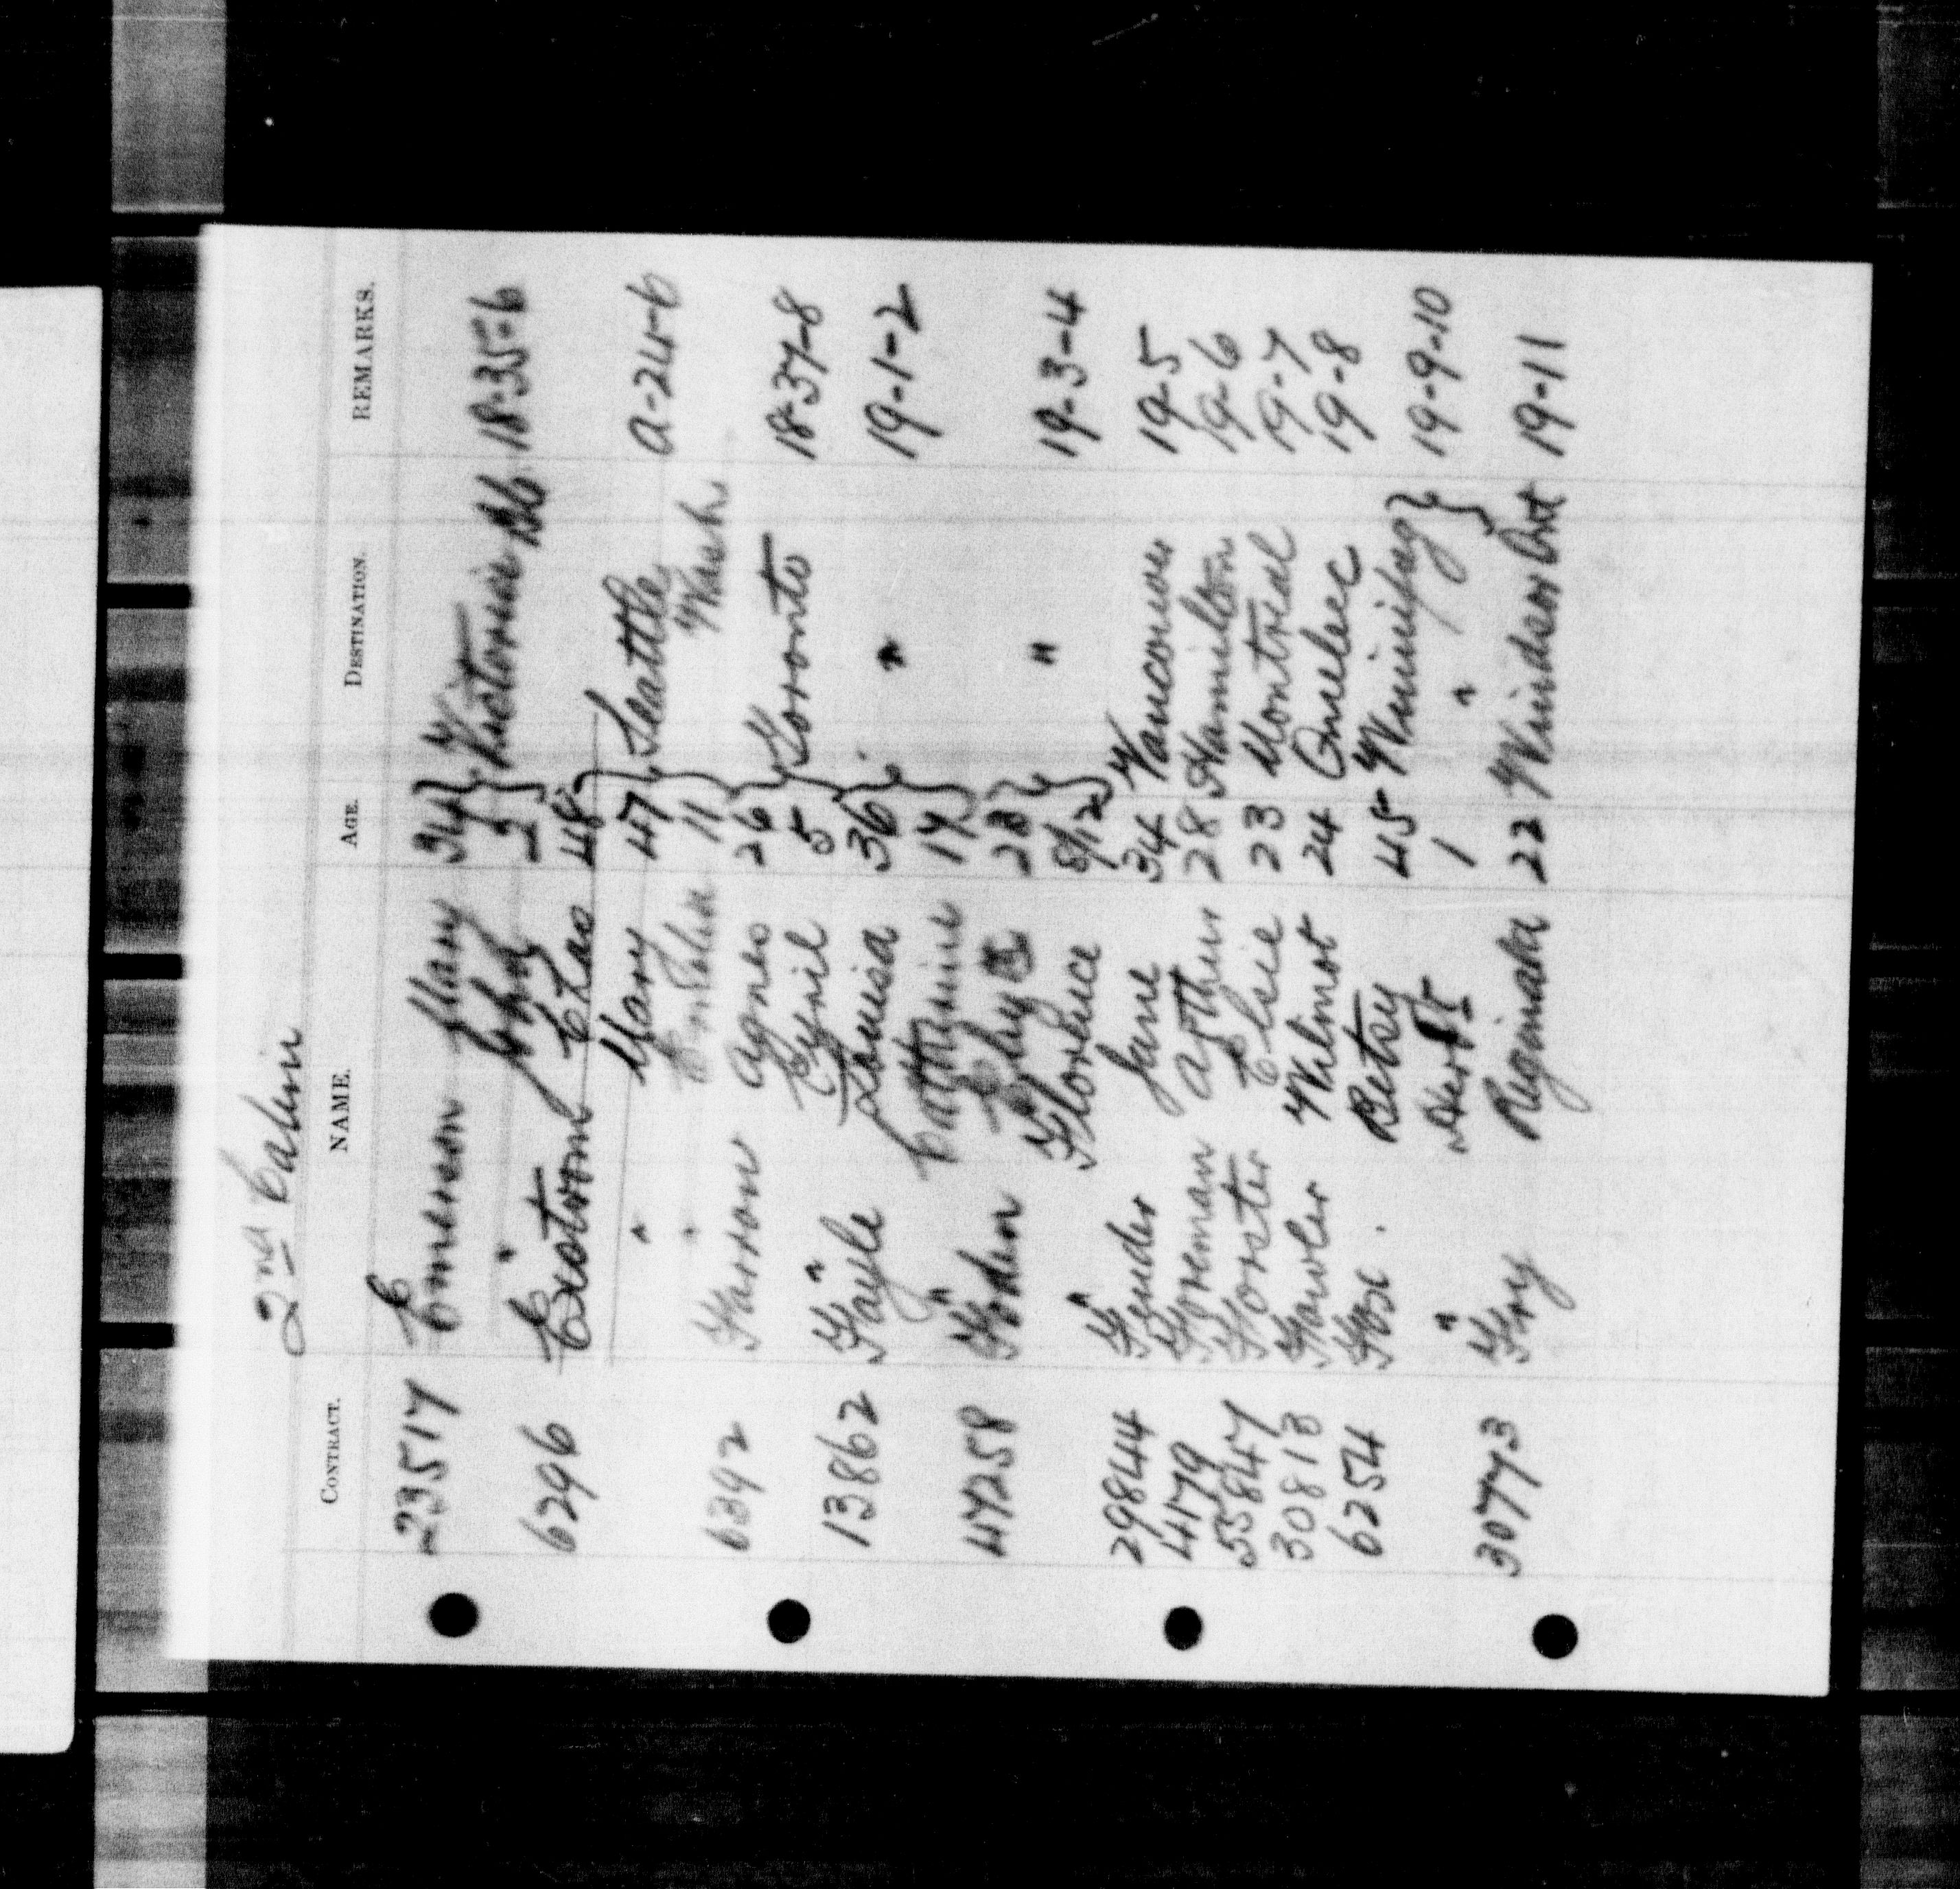 2nd Cabin
CONTRACT. NAME. AGE. DESTINATION. REMARKS.
E
23517 Emerson Mary 34 } Victoria BC 18-35-6
" John 2 }
6296 Chas 48 }
" Mary 47 } Seattle a-24-6
" 11 } Wash
6392 Farrow Agnes 26 } Toronto 18-37-8
" Cyril 5 }
13862 Fayle Louisa 36 } " 19-1-2
" Catherine 17 }
47258 Foden 28 } " 19-3-4
" Florence 8/12 }
29844 Fender Jane 34 Vancouver 19-5
4179 Foreman Arthur 28 Hamilton 19-6
55847 Forster Elsie 23 Montreal 19-7
30813 Fowler Wilmot 24 Quebec 19-8
6254 Fose Betsy 45 Winnipeg } 19-9-10
" 1 " }
30773 Fry Reginald 22 Windsor Ont 19-11